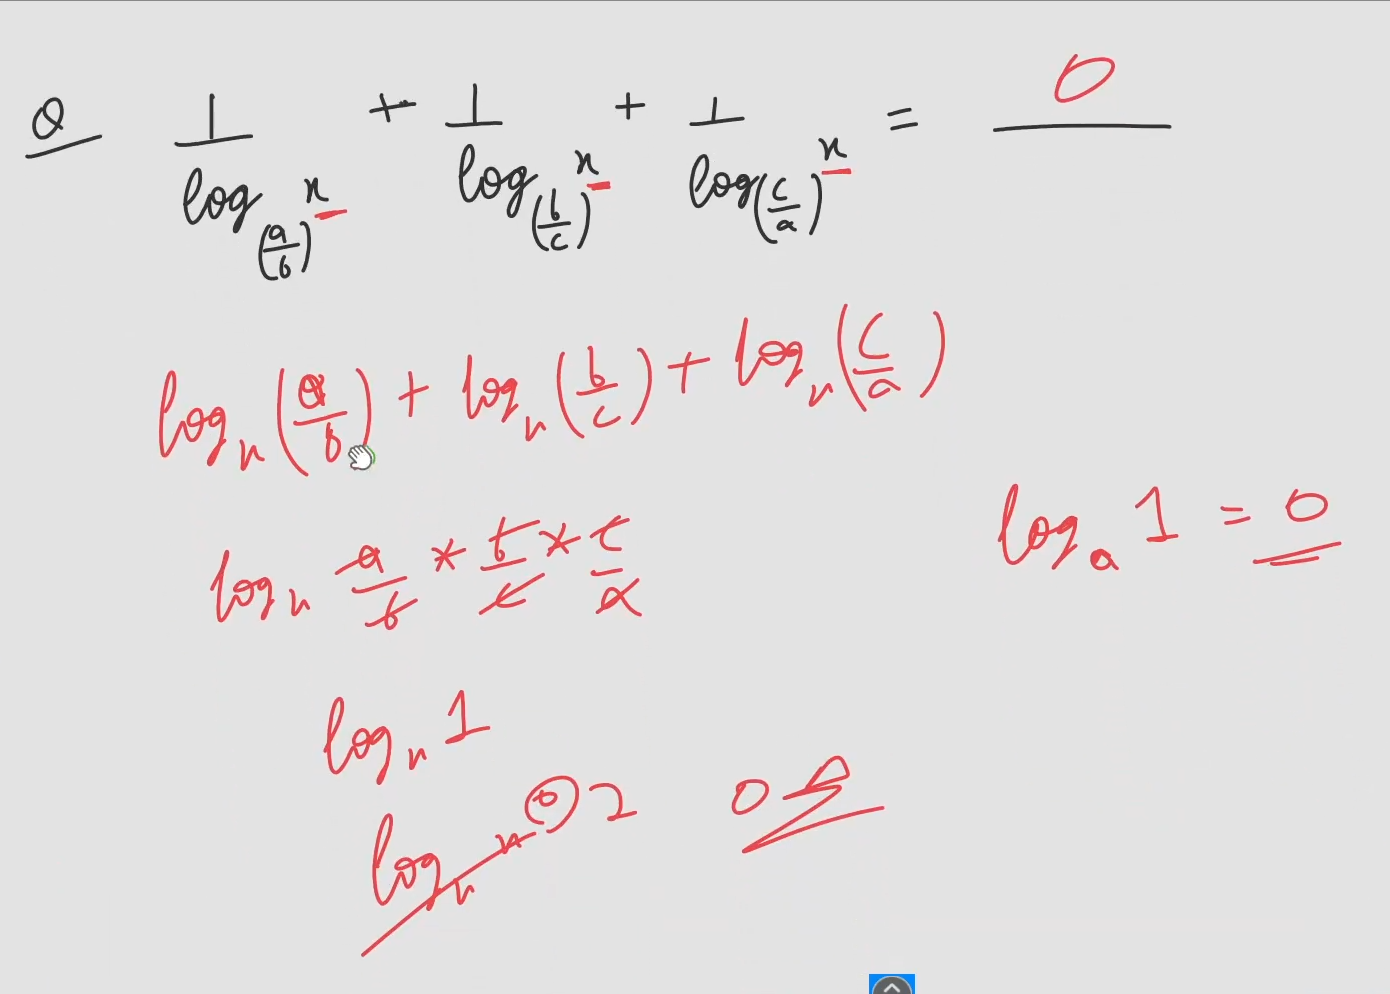 Q 1/log_(a/b) x + 1/log_(b/c) x + 1/log_(c/a) x = 0
log_x (a/b) + log_x (b/c) + log_x (c/a)
log_a 1 = 0
log_x a/b * b/c * c/a
log_x 1
log_x x^0 0